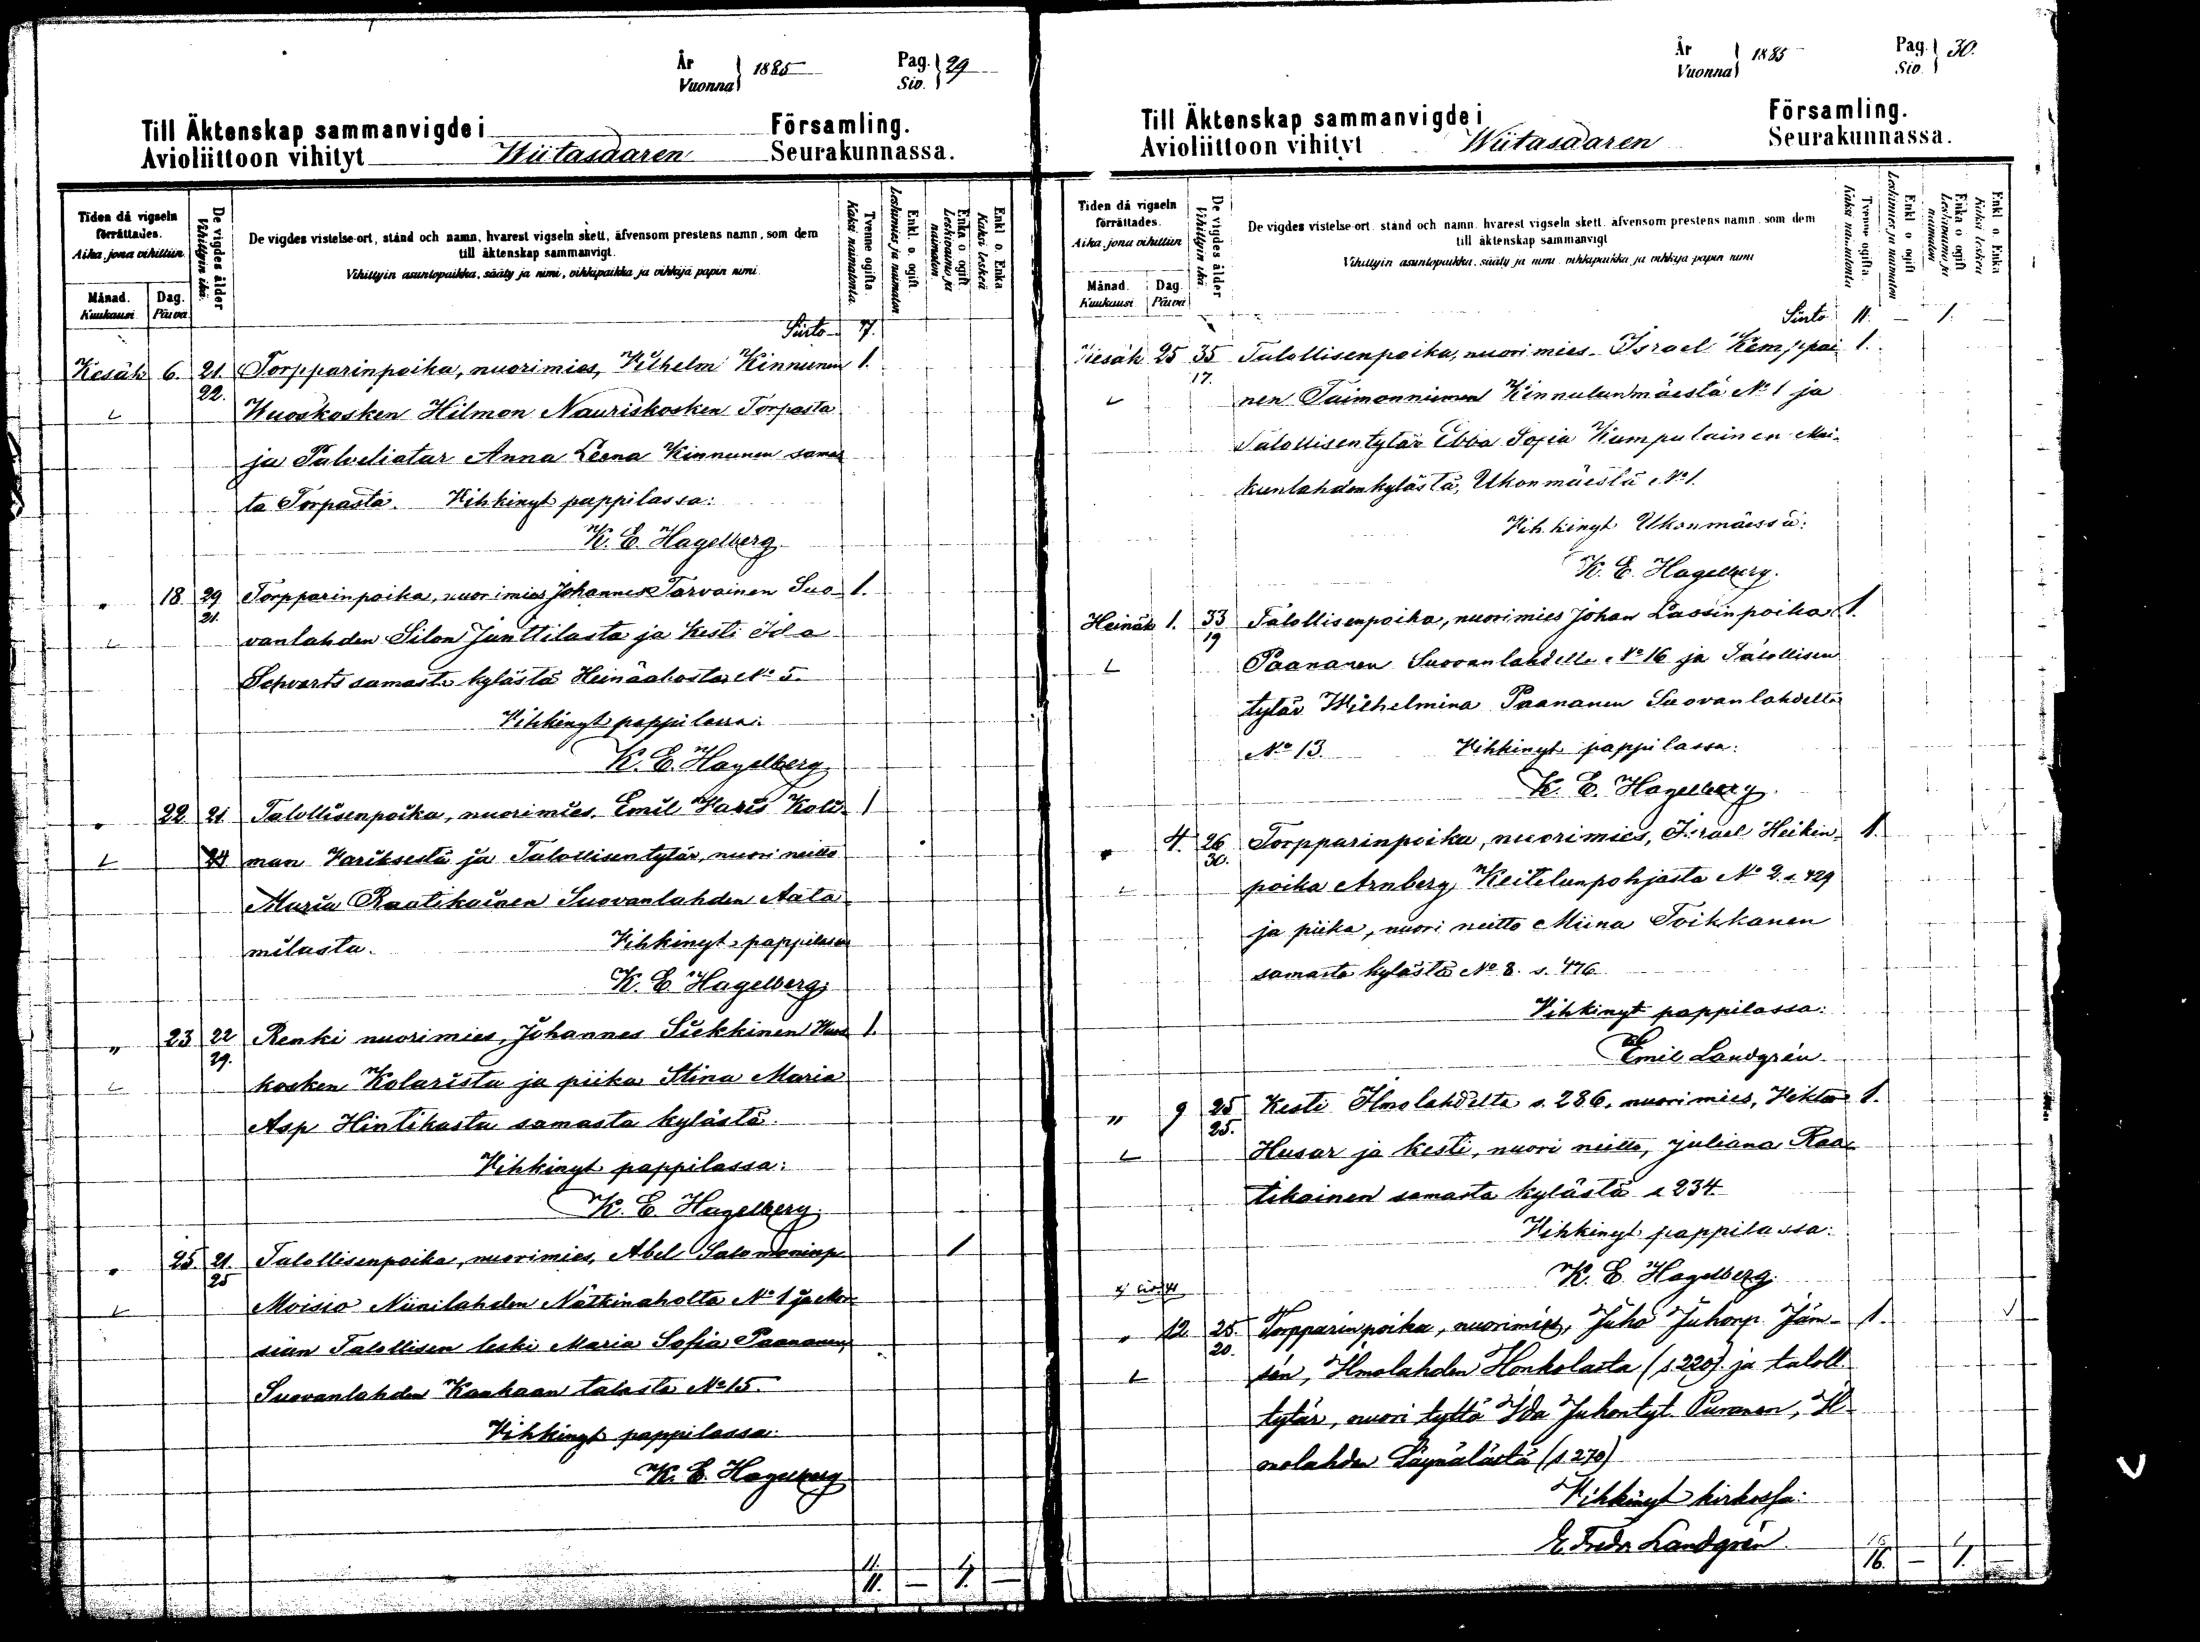 År
Vuonna 1885
Pag.
Siv. 29
Till Äktenskap sammanvigde i Församling.
Avioliittoon vihityt Wiitasaaren Seurakunnassa.
Tiden då vigseln förrättades.
Aika, jona vihittiin
Månad. Kuukausi
Dag. Päivä
De vigdes ålder
Vihittyin ikä
De vigdes vistelse-ort, stånd och namn, hvarest vigseln skett, äfvensom prestens namn, som dem
till äktenskap sammanvigt.
Vihittyin asuntopaikka, sääty ja nimi, vihkipaikka ja vihkijä papin nimi
Tvenne ogifta. Kaksi naimatonta.
Enkl. o. ogift. Leskimies ja naimaton
Enka o ogift Leskivaimo ja naimaton
Enkl o. Enka Kaksi leskeä
Siirto 7.
Kesäk 6. 21. Torpparinpoika, nuorimies, Vilhelm Kinnunen 1.
22. Wuoskosken Hilmon Nauriskosken Torpasta
ja Palveliatar Anna Leena Kinnunen samas
ta Torpasta. Vihkinyt pappilassa:
K. E. Hagelberg
" 18 29 Torpparinpoika, nuorimies Johannes Tarvainen Suo- 1.
21. vanlahden Silon Junttilasta ja Kesti Ida
Schvarts samasta kylästä Heinäaholta No 5.
Vihkinyt pappilassa:
K. E. Hagelberg
" 22 21 Talollisenpoika, nuorimies, Emil Haris Koli- 1
24 man Variksesta ja Talollisentytär, nuori neitto
Maria Raatikainen Suovanlahden Aata
milasta. Vihkinyt pappilassa
K. E. Hagelberg
" 23 22 Renki nuorimies, Johannes Siekkinen Wuos 1.
29. kosken Kolarista ja piika Stina Maria
Asp Hintikasta samasta kylästä.
Vihkinyt pappilassa:
K. E. Hagelberg
" 25. 21. Talollisenpoika, nuorimies, Abel Salomoninp 1
25 Moisio Niinilahden Nätkinaholta No 1 ja
sian Talollisen leski Maria Sofia Paananen,
Suovanlahden Kaakaan talosta No 15.
Vihkinyt pappilassa:
K. E. Hagelberg
11. 1.
11. — 1. —
År
Vuonna 1885
Pag.
Siv. 30.
Till Äktenskap sammanvigde i Församling.
Avioliittoon vihityt Wiitasaaren Seurakunnassa.
Tiden då vigseln förrättades.
Aika, jona vihittiin
Månad. Kuukausi
Dag. Päivä
De vigdes ålder
Vihittyin ikä
De vigdes vistelse-ort. stånd och namn. hvarest vigseln skett. äfvensom prestens namn. som dem
till äktenskap sammanvigt
Vihittyin asuntopaikka, sääty ja nimi vihkipaikka ja vihkijä papin nimi
Tvenne ogifta. Kaksi naimatonta
Enkl o ogift Leskimies ja naimaton
Enka o ogift Leskivaimo ja naimaton
Enkl o. Enka Kaksi leskeä
Siirto 11. — 1. —
Kesäk 25 35 Talollisenpoika, nuorimies Israel Kemppai 1.
17. nen Taimonniemen Kinnulanmäestä No 1 ja
Talollisentytär Ebba Sofia Kumpulainen Mui-
kunlahdenkylästä, Ukonmäestä No 1.
Vihkinyt Ukonmäessä:
K. E. Hagelberg.
Heinäk 1. 33 Talollisenpoika, nuorimies Johan Lassinpoika 1.
19 Paananen Suovanlahdella No 16 ja Talollisen
tytär Wilhelmina Paananen Suovanlahdelta
No 13. Vihkinyt pappilassa:
K. E. Hagelberg.
" 4. 26 Torpparinpoika, nuorimies, Israel Heikin- 1.
30. poika Arnberg Keitelenpohjasta No 2. s. 429
ja piika, nuori neitto Miina Toikkanen
samasta kylästä No 8. s. 476
Vihkinyt pappilassa:
Emil Landgrén
" 9 25 Kesti Ilmolahdelta s. 286. nuorimies, Viktor 1.
25. Husar ja kesti, nuori neitto, Juliana Raa
tikainen samasta kylästä s 234.
Vihkinyt pappilassa:
K. E. Hagelberg.
" 12. 25. Torpparinpoika, nuorimies, Juho Juhonp. Jäm- 1.
20. sén, Ilmolahden Honkolasta (s. 220). ja taloll.
tytär, nuori tyttö Ida Juhontyt. Puranen, Il-
molahden Läynälästä (s 270)
Vihkinyt kirkossa:
E. Fredr Landgrén
15 1
16. — 1. —